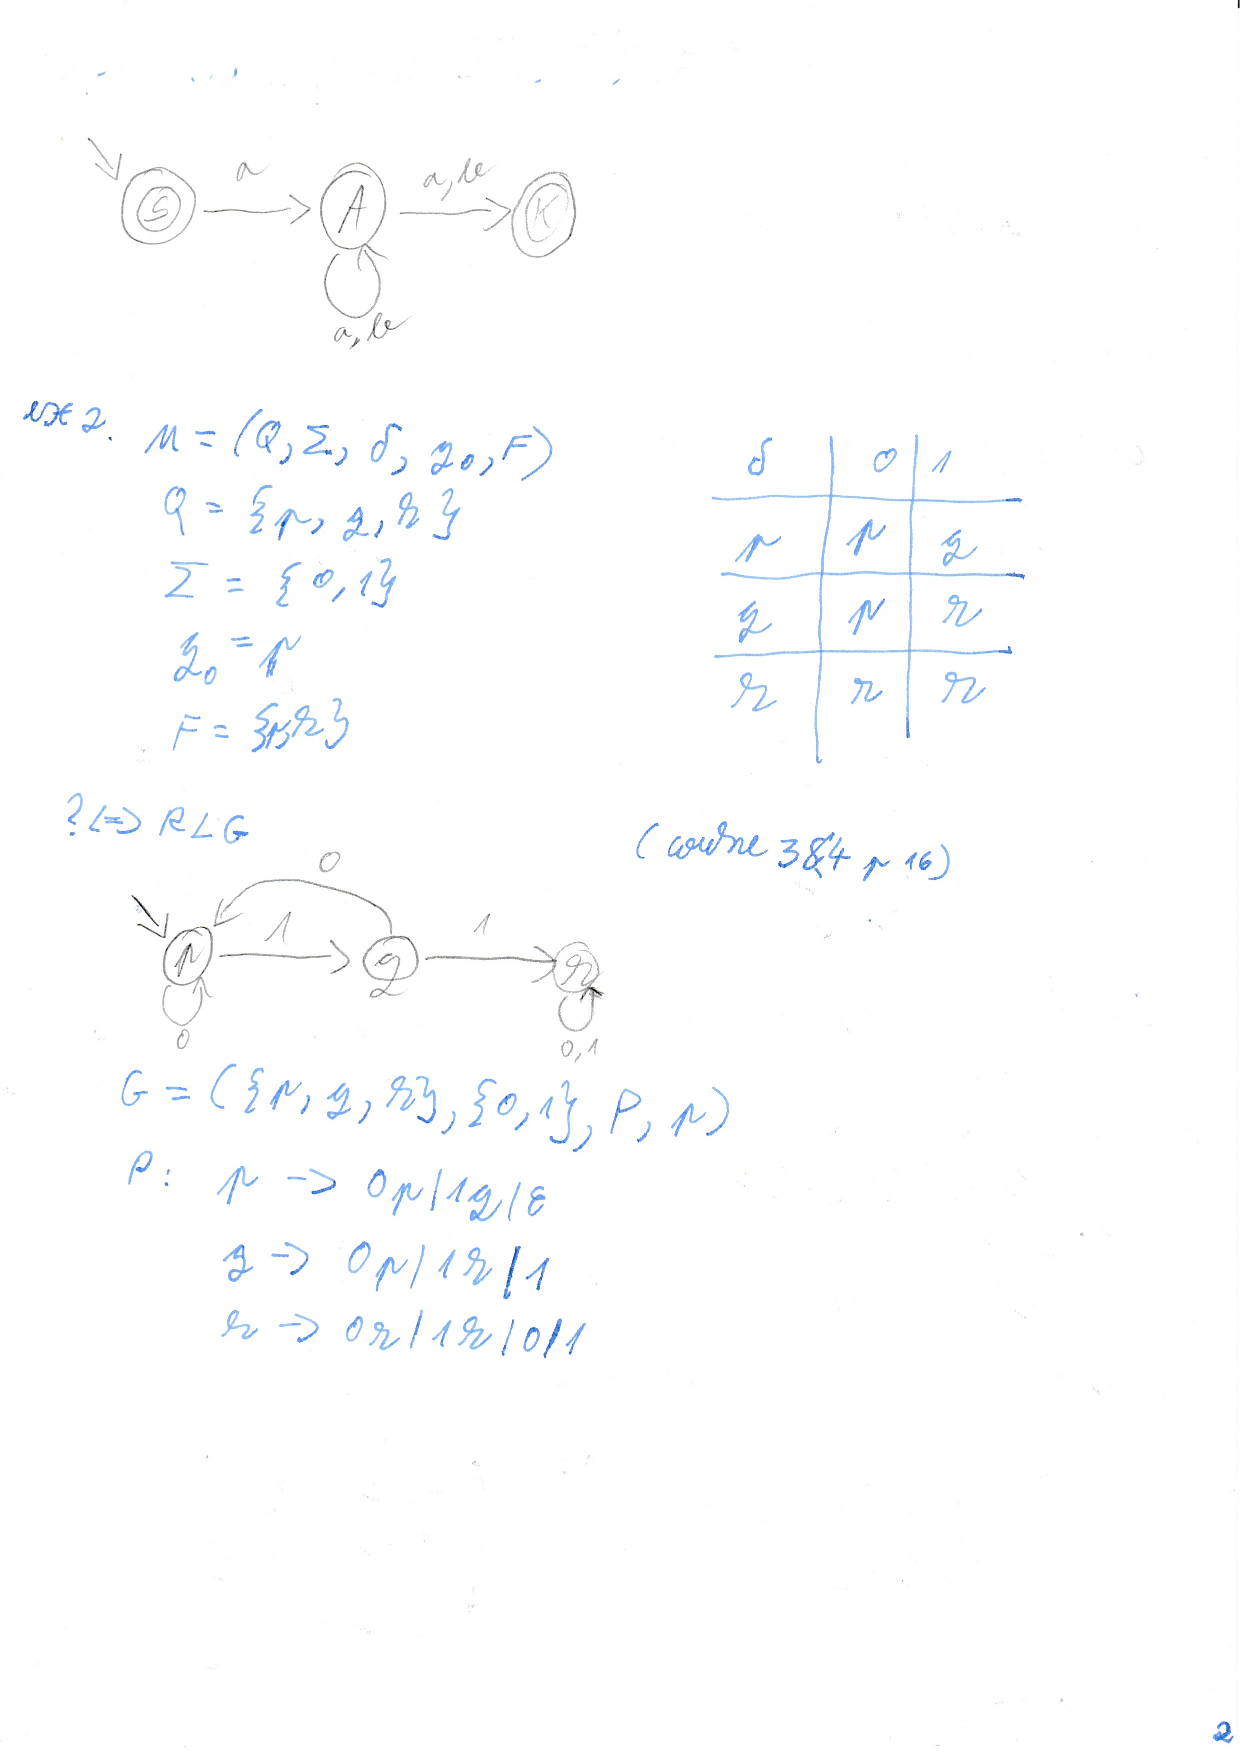 a
a, b
S
A
K
a, b
ex 2.
M = (Q, Σ, δ, q₀, F)
Q = {p, q, r}
Σ = {0, 1}
q₀ = p
F = {p, r}
δ | 0 | 1
p | p | q
q | p | r
r | r | r
? <=> RLG
(course 3&4 p 16)
0
1
1
p
q
r
0
0, 1
G = ({p, q, r}, {0, 1}, P, p)
P: p -> 0p | 1q | ε
q -> 0p | 1r | 1
r -> 0r | 1r | 0 | 1
2